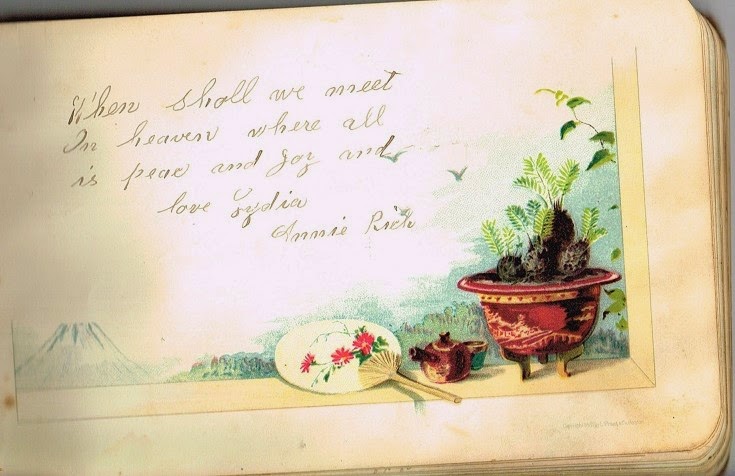 When shall we meet
In heaven where all
is peac and Joy and
love Lydia
Annie Rich